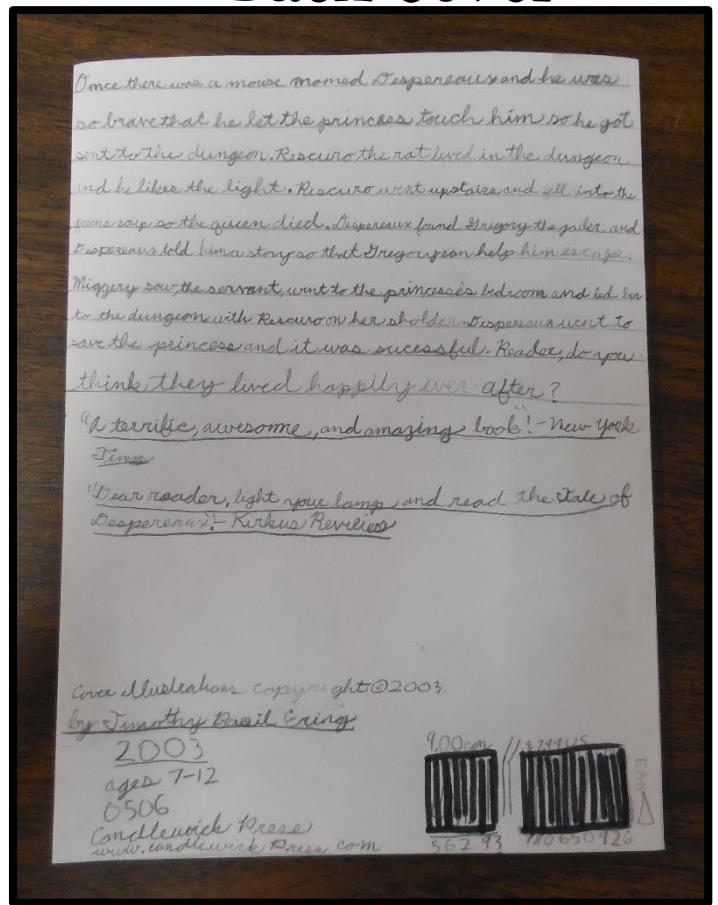 Back Cover
Once there was a mouse mamed Despereaux and he was
so brave that he let the princess touch him so he got
sent to the dungeon. Roscuro the rat lived in the dungeon
and he likes the light. Roscuro went upstairs and fell into the
queens soup so the queen died. Despereaux found Gregory the jailer and
Despereaux told him a story so that Gregory can help him escape.
Miggery sow, the servant, went to the princess's bedroom and led her
to the dungeon with Roscuro on her sholder. Despereaux went to
save the princess and it was sucessful. Reader, do you
think they lived happily ever after?
"A terrific, awesome, and amazing book"! - New York
Times
"Dear reader, light your lamp and read the Tale of
Despereaux"! - Kirkus Reviews
Cover illustrations copyright © 2003
by Timothy Basil Ering
2003
ages 7-12
0506
Candlewick Press
www.candlewick Press com
9,00can // $7.99 US
EAN
562 93 780650926